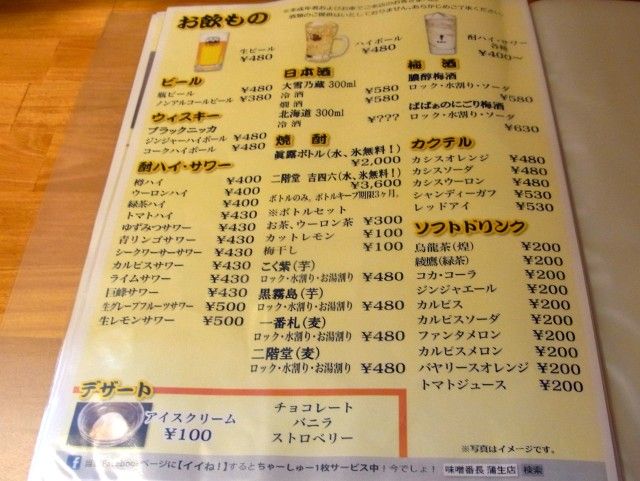 お飲もの
※未成年者およびお車でご来店のお客さま
酒類のご提供はいたしておりません。あらかじめご了承ください。
生ビール
¥480
ハイボール
¥480
酎ハイ・サワー
各種
¥400~
ビール
瓶ビール ¥480
ノンアルコールビール ¥380
ウィスキー
ブラックニッカ
ジンジャーハイボール ¥480
コークハイボール ¥480
酎ハイ・サワー
樽ハイ ¥400
ウーロンハイ ¥400
緑茶ハイ ¥400
トマトハイ ¥430
ゆずみつサワー ¥430
青リンゴサワー ¥430
シークワーサーサワー ¥430
カルピスサワー ¥430
ライムサワー ¥430
巨峰サワー ¥430
生グレープフルーツサワー ¥500
生レモンサワー ¥500
日本酒
大雪乃蔵 300ml
冷酒 ¥580
燗酒 ¥580
北海道 300ml
冷酒 ¥???
焼酎
眞露ボトル(水、氷無料!)
¥2,000
二階堂 吉四六(水、氷無料!)
¥3,600
ボトルのみ。ボトルキープ期限3ヶ月。
※ボトルセット
お茶、ウーロン茶 ¥300
カットレモン ¥100
梅干し ¥100
こく紫(芋)
ロック・水割り・お湯割り ¥480
黒霧島(芋)
ロック・水割り・お湯割り ¥480
一番札(麦)
ロック・水割り・お湯割り ¥480
二階堂(麦)
ロック・水割り・お湯割り ¥480
梅酒
醸醇梅酒
ロック・水割り・ソーダ
¥580
ばばぁのにごり梅酒
ロック・水割り・ソーダ
¥630
カクテル
カシスオレンジ ¥480
カシスソーダ ¥480
カシスウーロン ¥480
シャンディーガフ ¥530
レッドアイ ¥530
ソフトドリンク
烏龍茶(煌) ¥200
綾鷹(緑茶) ¥200
コカ・コーラ ¥200
ジンジャエール ¥200
カルピス ¥200
カルピスソーダ ¥200
ファンタメロン ¥200
カルピスメロン ¥200
バヤリースオレンジ ¥200
トマトジュース ¥200
デザート
アイスクリーム
¥100
チョコレート
バニラ
ストロベリー
※写真はイメージです。
Facebookページに【イイね!】するとちゃーしゅー1枚サービス中!今でしょ! 味噌番長 蒲生店 検索